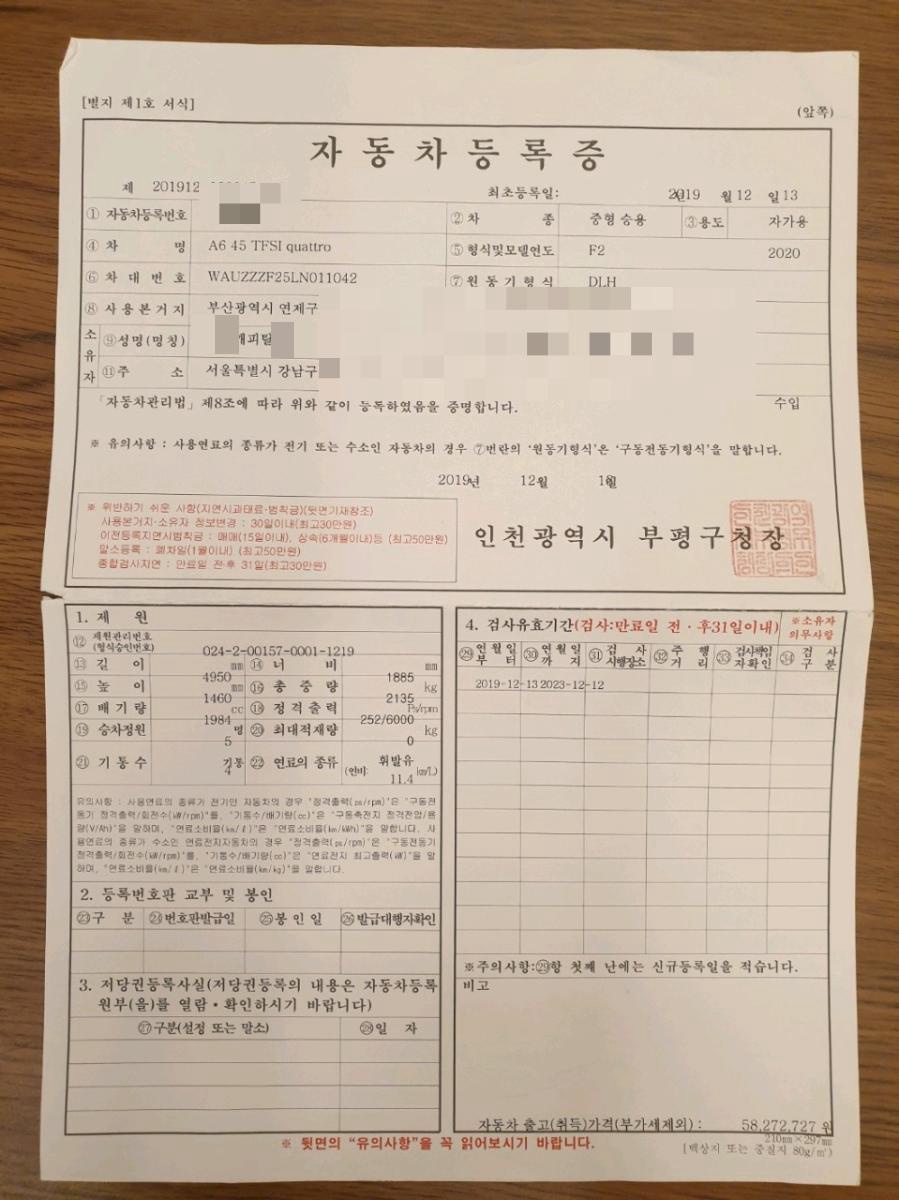 [별지 제1호 서식]
(앞쪽)
자동차등록증
제 201912
최초등록일: 2019년 월 12 일 13
① 자동차등록번호 ② 차 종 중형 승용 ③ 용도 자가용
④ 차 명 A6 45 TFSI quattro ⑤ 형식및모델연도 F2 2020
⑥ 차 대 번 호 WAUZZZF25LN011042 ⑦ 원 동 기 형 식 DLH
⑧ 사 용 본 거 지 부산광역시 연제구
소유자 ⑨ 성명(명칭) 캐피탈
⑪ 주 소 서울특별시 강남구
「자동차관리법」 제8조에 따라 위와 같이 등록하였음을 증명합니다. 수입
※ 유의사항 : 사용연료의 종류가 전기 또는 수소인 자동차의 경우 ⑦번란의 '원동기형식'은 '구동전동기형식'을 말합니다.
2019년 12월 일
※ 위반하기 쉬운 사항(지연시과태료·범칙금)(뒷면기재참조)
사용본거지·소유자 정보변경 : 30일이내(최고30만원)
이전등록지연시범칙금 : 매매(15일이내), 상속(6개월이내)등 (최고50만원)
말소등록 : 폐차일(1월이내) (최고50만원)
종합검사지연 : 만료일 전·후 31일(최고30만원)
인천광역시 부평구청장
1. 제 원
⑫ 제원관리번호 (형식승인번호) 024-2-00157-0001-1219
⑬ 길 이 4950 mm ⑭ 너 비 1885 mm
⑮ 높 이 1460 mm ⑯ 총 중 량 2135 kg
⑰ 배 기 량 1984 cc ⑱ 정 격 출 력 252/6000 Ps/rpm
⑲ 승차정원 5 명 ⑳ 최대적재량 0 kg
㉑ 기 통 수 4 기통 ㉒ 연료의 종류 휘발유 (연비: 11.4 km/L)
유의사항 : 사용연료의 종류가 전기인 자동차의 경우 "정격출력(ps/rpm)"은 "구동전
동기 정격출력/회전수(kW/rpm)"를, "기통수/배기량(cc)"은 "구동축전지 정격전압/용
량(V/Ah)"을 말하며, "연료소비율(km/ℓ)"은 "연료소비율(km/kWh)"을 말합니다. 사
용연료의 종류가 수소인 연료전지자동차의 경우 "정격출력(ps/rpm)"은 "구동전동기
정격출력/회전수(kW/rpm)"를, "기통수/배기량(cc)"은 "연료전지 최고출력(kW)"을 말
하며, "연료소비율(km/ℓ)"은 "연료소비율(km/kg)"을 말합니다.
2. 등록번호판 교부 및 봉인
㉓ 구 분 ㉔ 번호판발급일 ㉕ 봉 인 일 ㉖ 발급대행자확인
3. 저당권등록사실(저당권등록의 내용은 자동차등록
원부(을)를 열람·확인하시기 바랍니다)
㉗ 구분(설정 또는 말소) ㉘ 일 자
4. 검사유효기간(검사:만료일 전·후31일이내) ※소유자 의무사항
㉙ 연월일부터 ㉚ 연월일까지 ㉛ 검사시행장소 ㉜ 주행거리 ㉝ 검사책임자확인 ㉞ 검사구분
2019-12-13 2023-12-12
※주의사항:㉙항 첫째 난에는 신규등록일을 적습니다.
비고
자동차 출고(취득)가격(부가세제외) : 58,272,727 원
※ 뒷면의 "유의사항"을 꼭 읽어보시기 바랍니다.
210㎜×297㎜
[백상지 또는 중질지 80g/㎡]